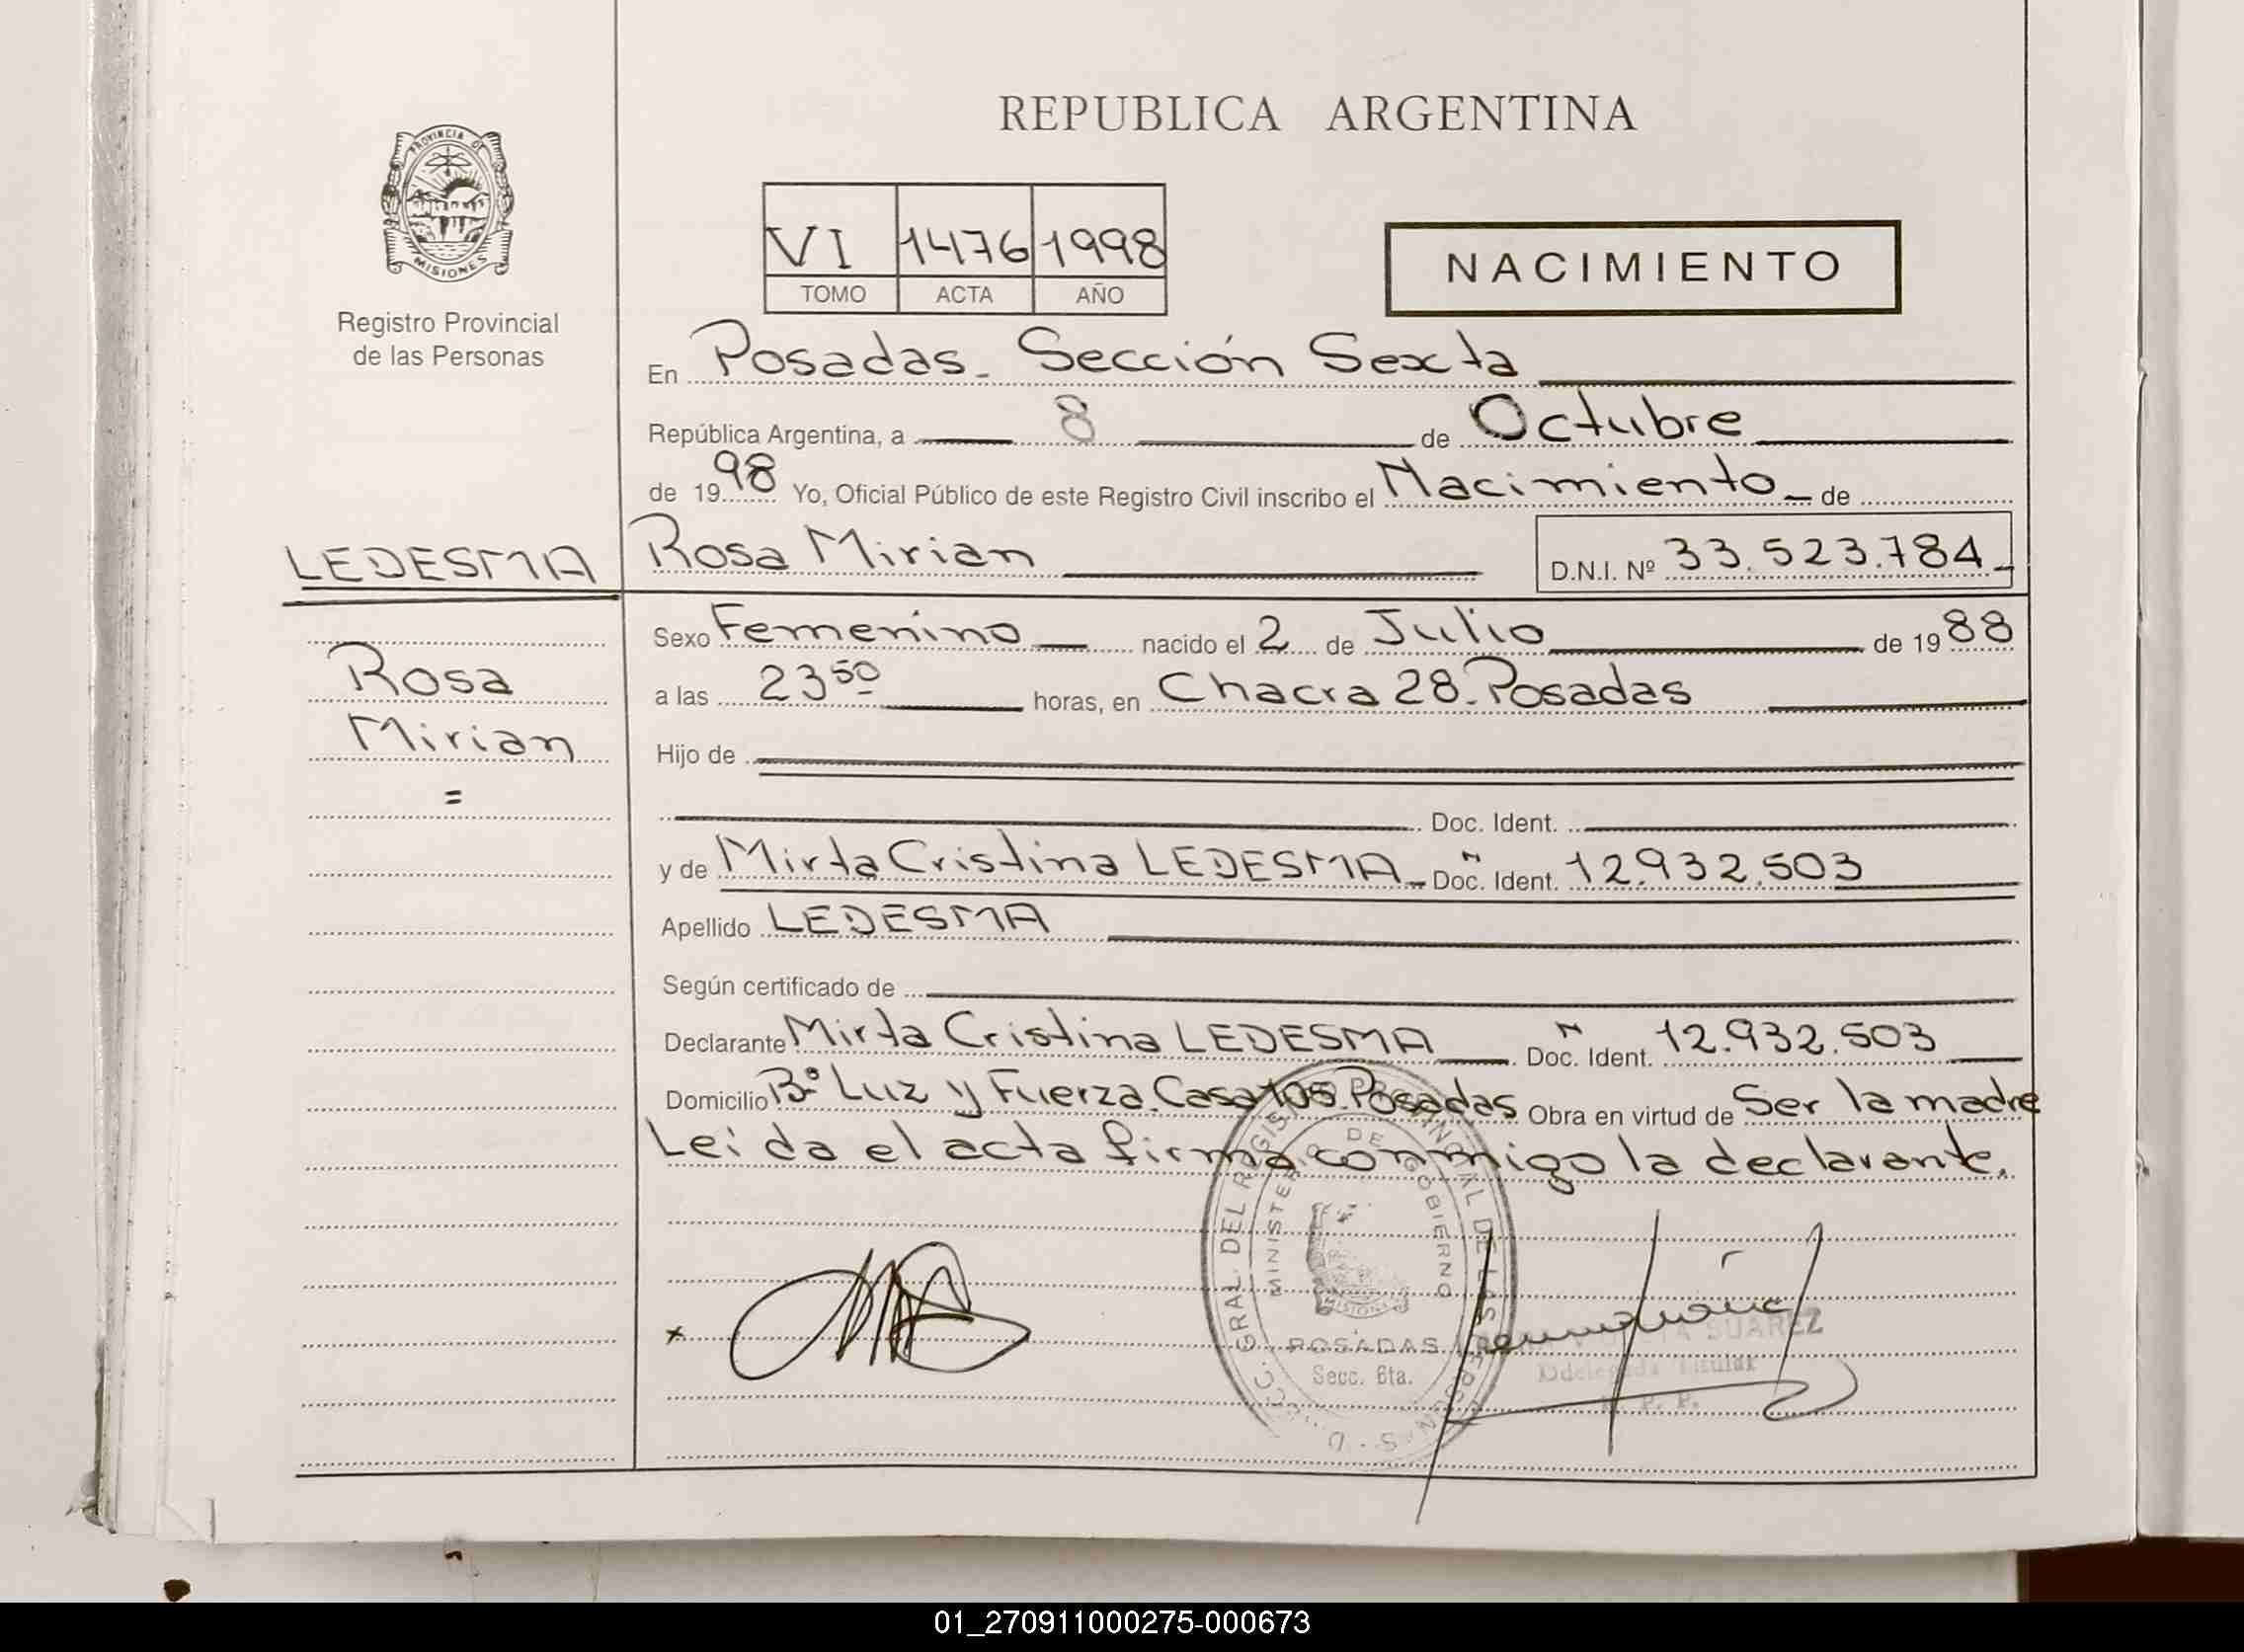 REPUBLICA ARGENTINA
PROVINCIA DE
MISIONES
Registro Provincial
de las Personas
VI 1476 1998
TOMO ACTA AÑO
NACIMIENTO
En Posadas - Sección Sexta
República Argentina, a 8 de Octubre
de 1998 Yo, Oficial Público de este Registro Civil inscribo el Nacimiento - de
LEDESMA Rosa Mirian D.N.I. Nº 33.523.784
Sexo Femenino nacido el 2 de Julio de 1988
Rosa
a las 23 50 horas, en Chacra 28. Posadas
Mirian
Hijo de
=
Doc. Ident.
y de Mirta Cristina LEDESMA - Doc. Ident. 12.932.503
Apellido LEDESMA
Según certificado de
Declarante Mirta Cristina LEDESMA Doc. Ident. 12.932.503
Domicilio Bº Luz y Fuerza. Casa 105. Posadas Obra en virtud de Ser la madre
Leida el acta firma conmigo la declarante.
GRAL. DEL REGISTRO PROVINCIAL DE LAS PERSONAS
MINISTERIO DE GOBIERNO
MISIONES
POSADAS
Secc. 6ta.
x
SUAREZ
Titular
01_270911000275-000673